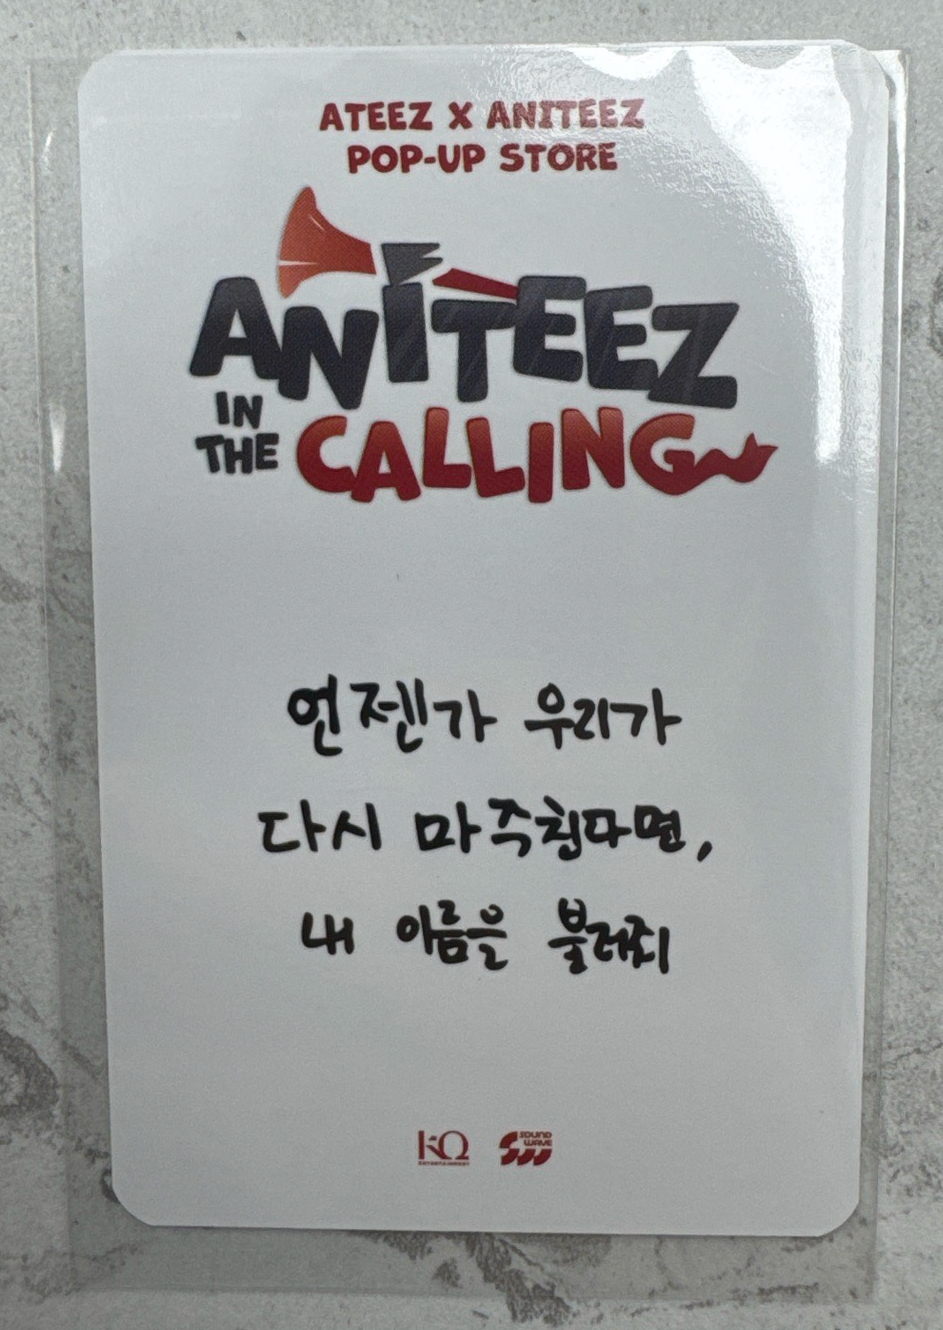 ATEEZ X ANITEEZ
POP-UP STORE
ANITEEZ
IN THE CALLING
언젠가 우리가
다시 마주친다면,
내 이름을 불러줘
KQ
ENTERTAINMENT
SOUND
WAVE